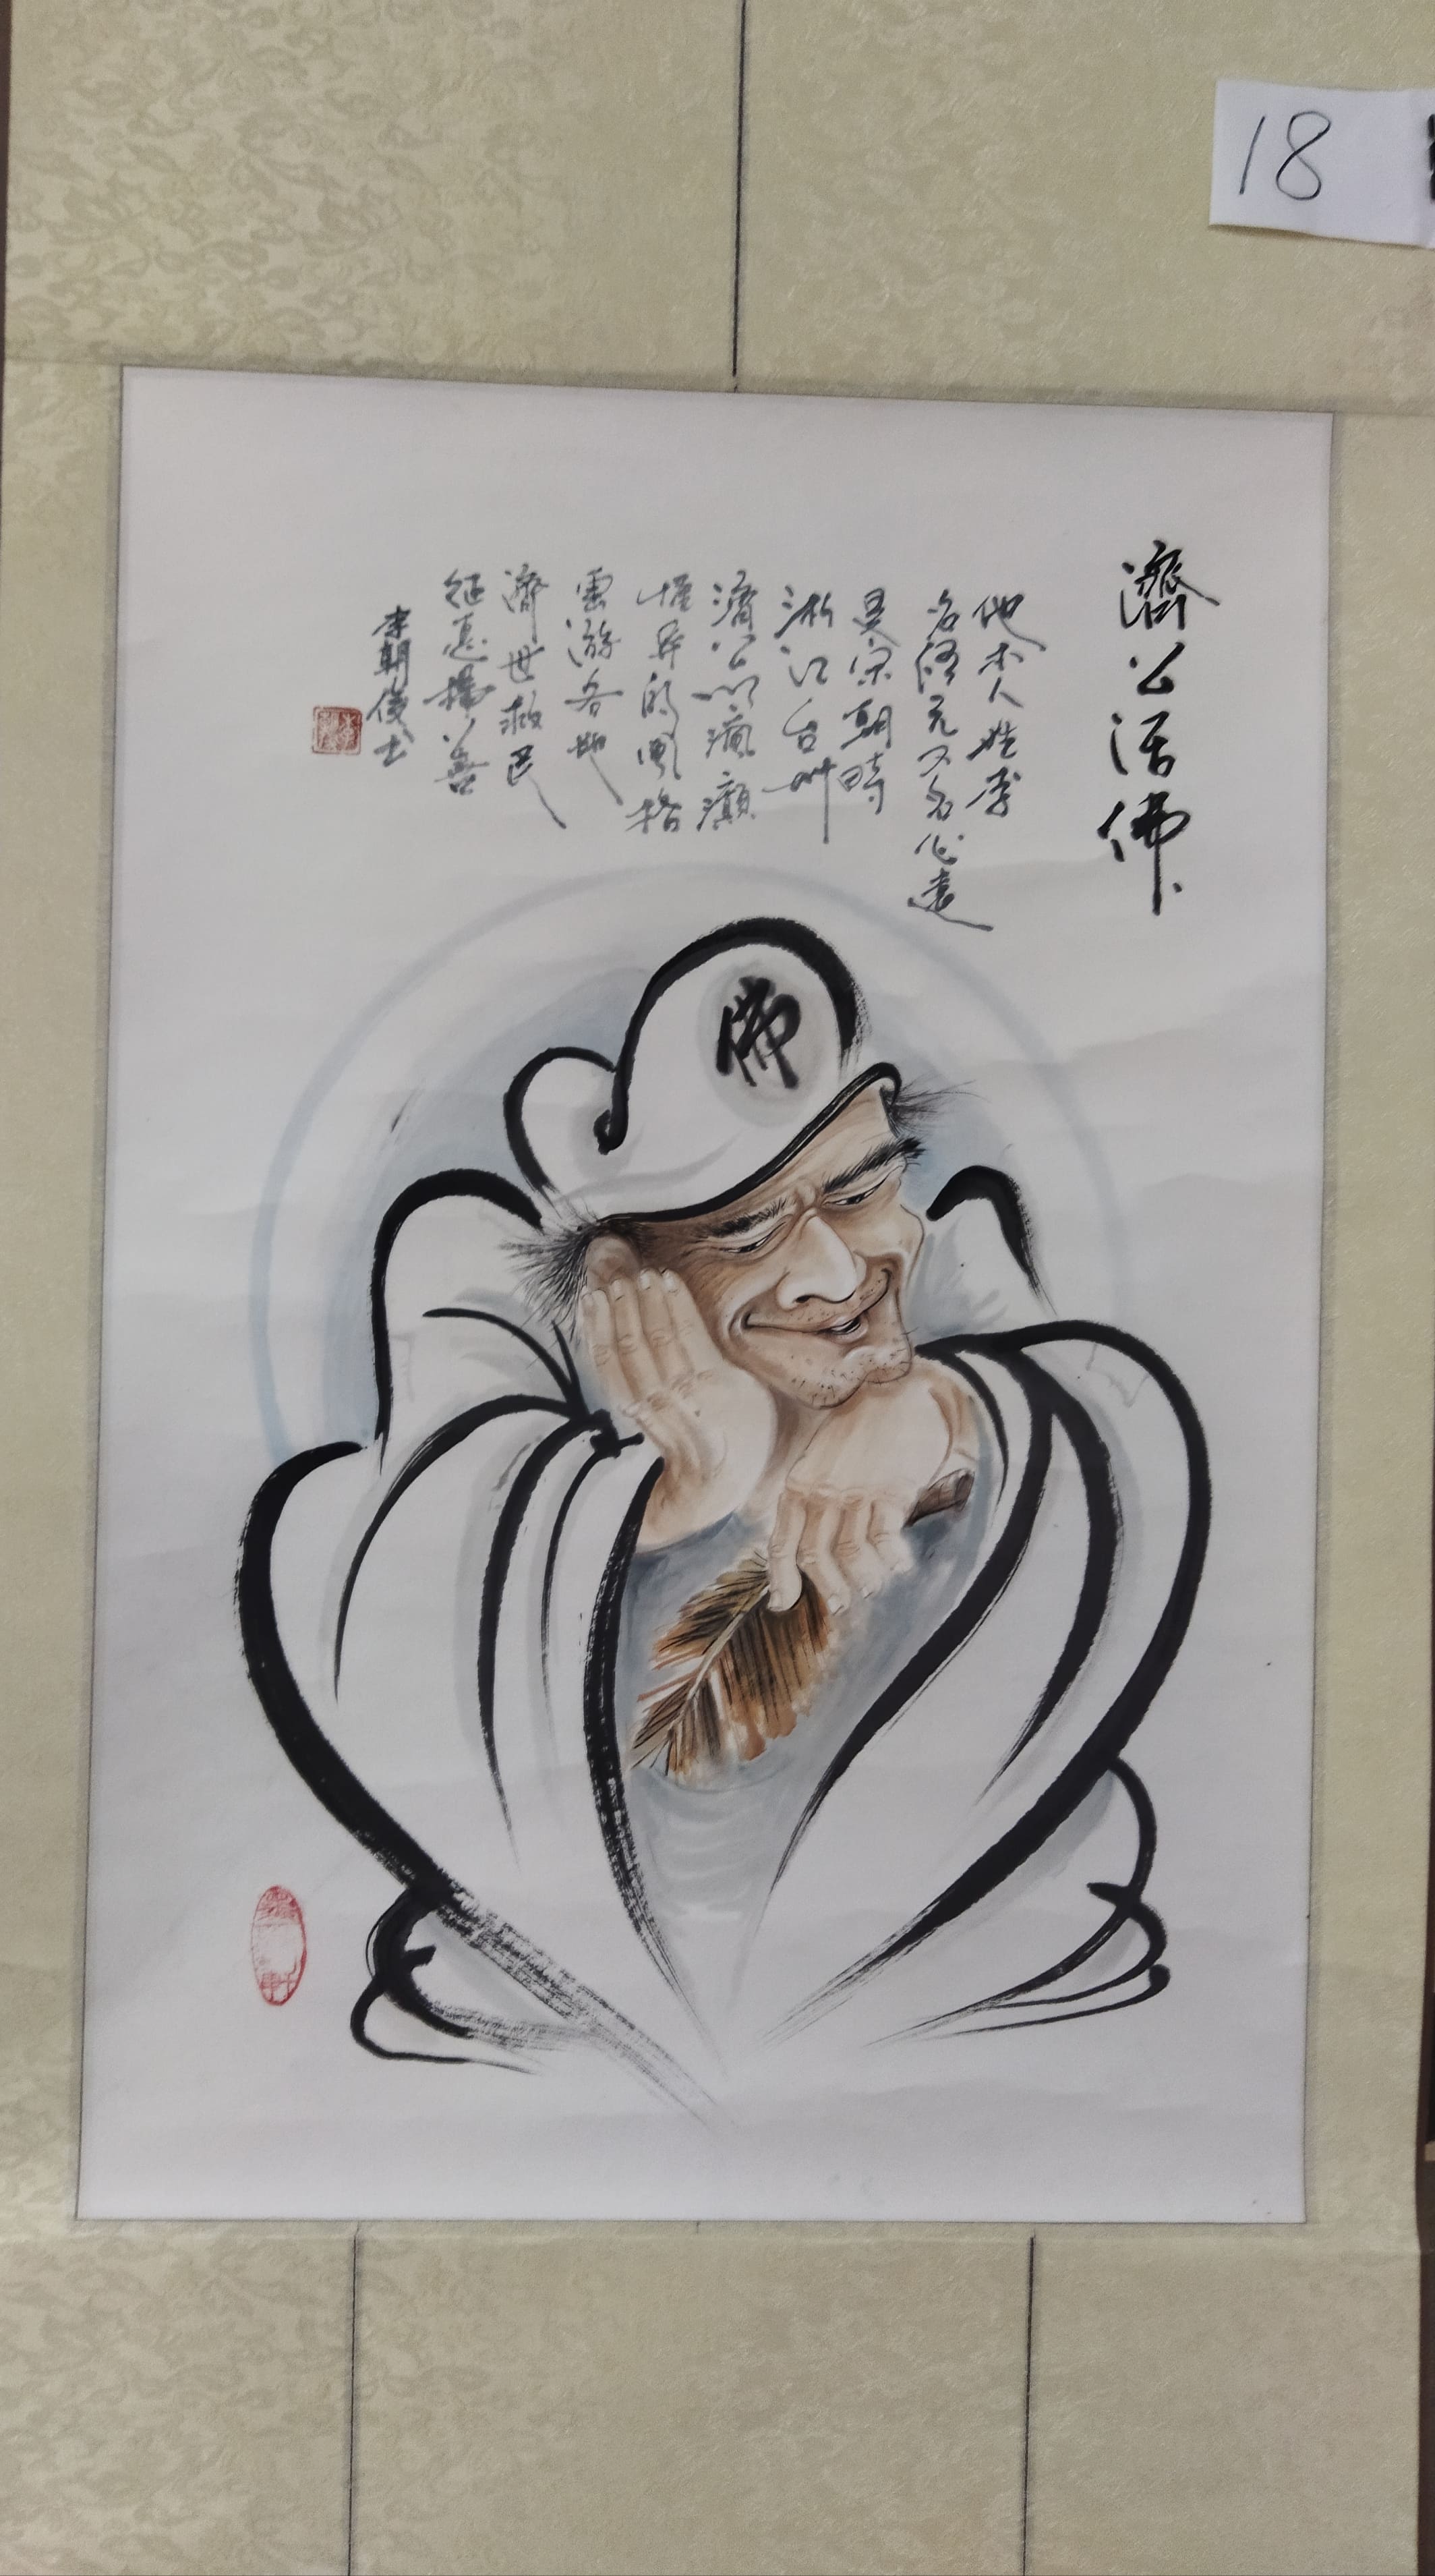 18
濟公活佛
他本人姓李
名修元又名心遠
是宋朝時
浙江台州
濟公以瘋癲
怪异的風格
雲游各地
濟世救民
征惡揚善
李朝俊书
佛